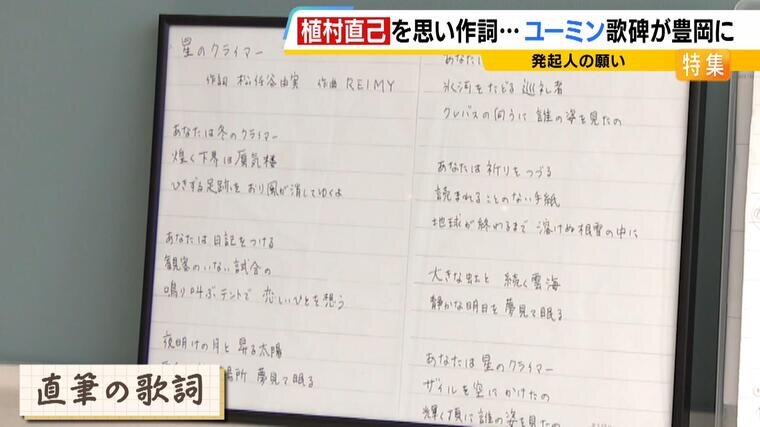 植村直己を思い作詞… ユーミン歌碑が豊岡に
発起人の願い
特集
星のクライマー
作詞 松任谷由実 作曲 REIMY
あなたは冬のクライマー
煌く下界は蜃気楼
ひきずる足跡を おり風が消してゆくよ
あなたは日記をつける
観客のいない試合の
鳴り叫ぶテントで 恋しいひとを想う
夜明けの月と 昇る太陽
場所 夢見て眠る
あなた
氷河をたどる 巡礼者
クレバスの向うに 誰の姿を見たの
あなたは祈りをつづる
読まれることのない手紙
地球が終わるまで 溶けぬ根雪の中に
大きな虹と 続く雲海
静かな明日を 夢見て眠る
あなたは星のクライマー
ザイルを空にかけたの
輝く頂に 誰の姿を見たの
直筆の歌詞